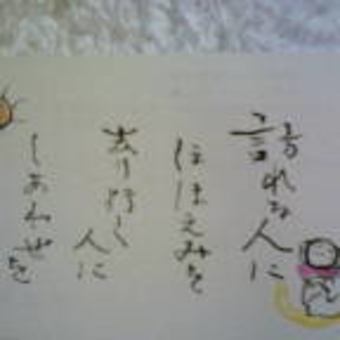 訪れる人に
ほほえみを
去り行く
人に
しあわせを